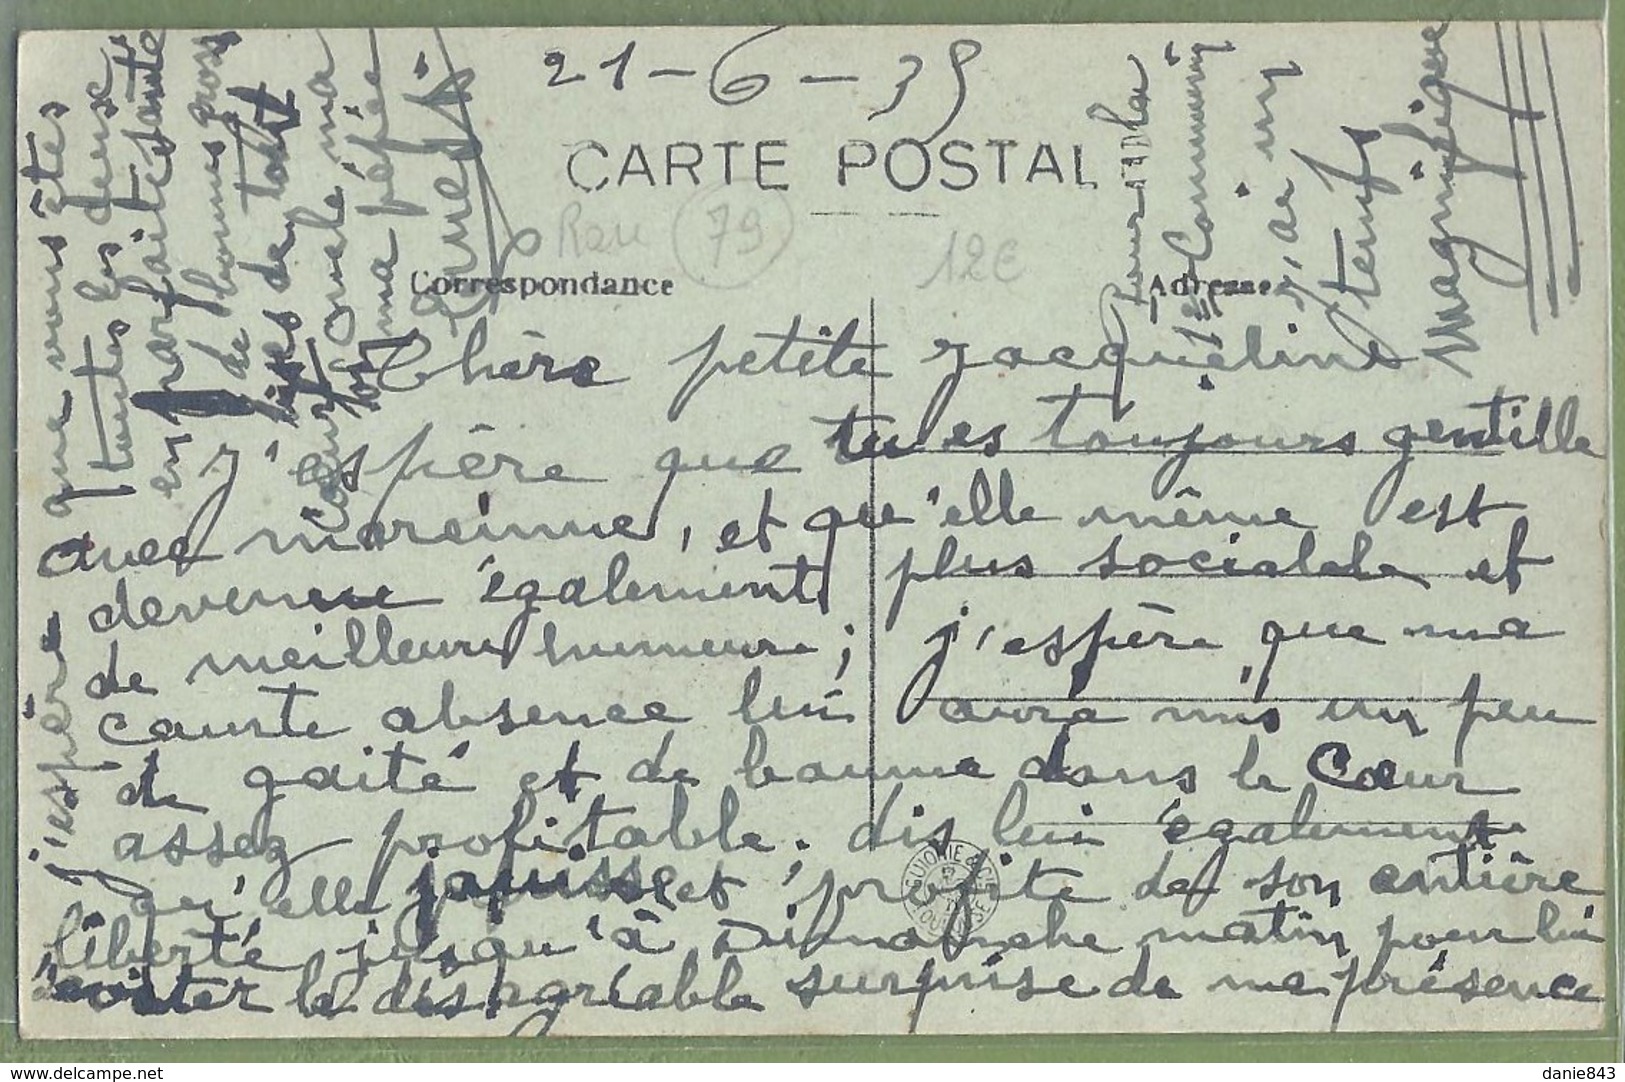 21-6-39
CARTE POSTAL
Rare 79 12€
Correspondance
Adresse
Chère petite Jacqueline
J'espère que tu es toujours gentille
avec mareinne, et qu'elle même est
devenue également plus sociable et
de meilleure humeur; j'espère que ma
courte absence lui aura mis un peu
de gaité et de baume dans le Cœur
assez profitable. dis lui également
qu'elle jouisse et profite de son entière
liberté jusqu'à Dimanche matin pour lui
éviter la désagréable surprise de ma présence
j'espère que vous êtes
toutes les deuse
en parfaite santé
de bonnes gross
bises de tout
cœur
ma pépée
Pour la
Communion
j'ai un
temps
Magnifique
GUIONIE & CIE
TOULOUSE
www.delcampe.net
danie843